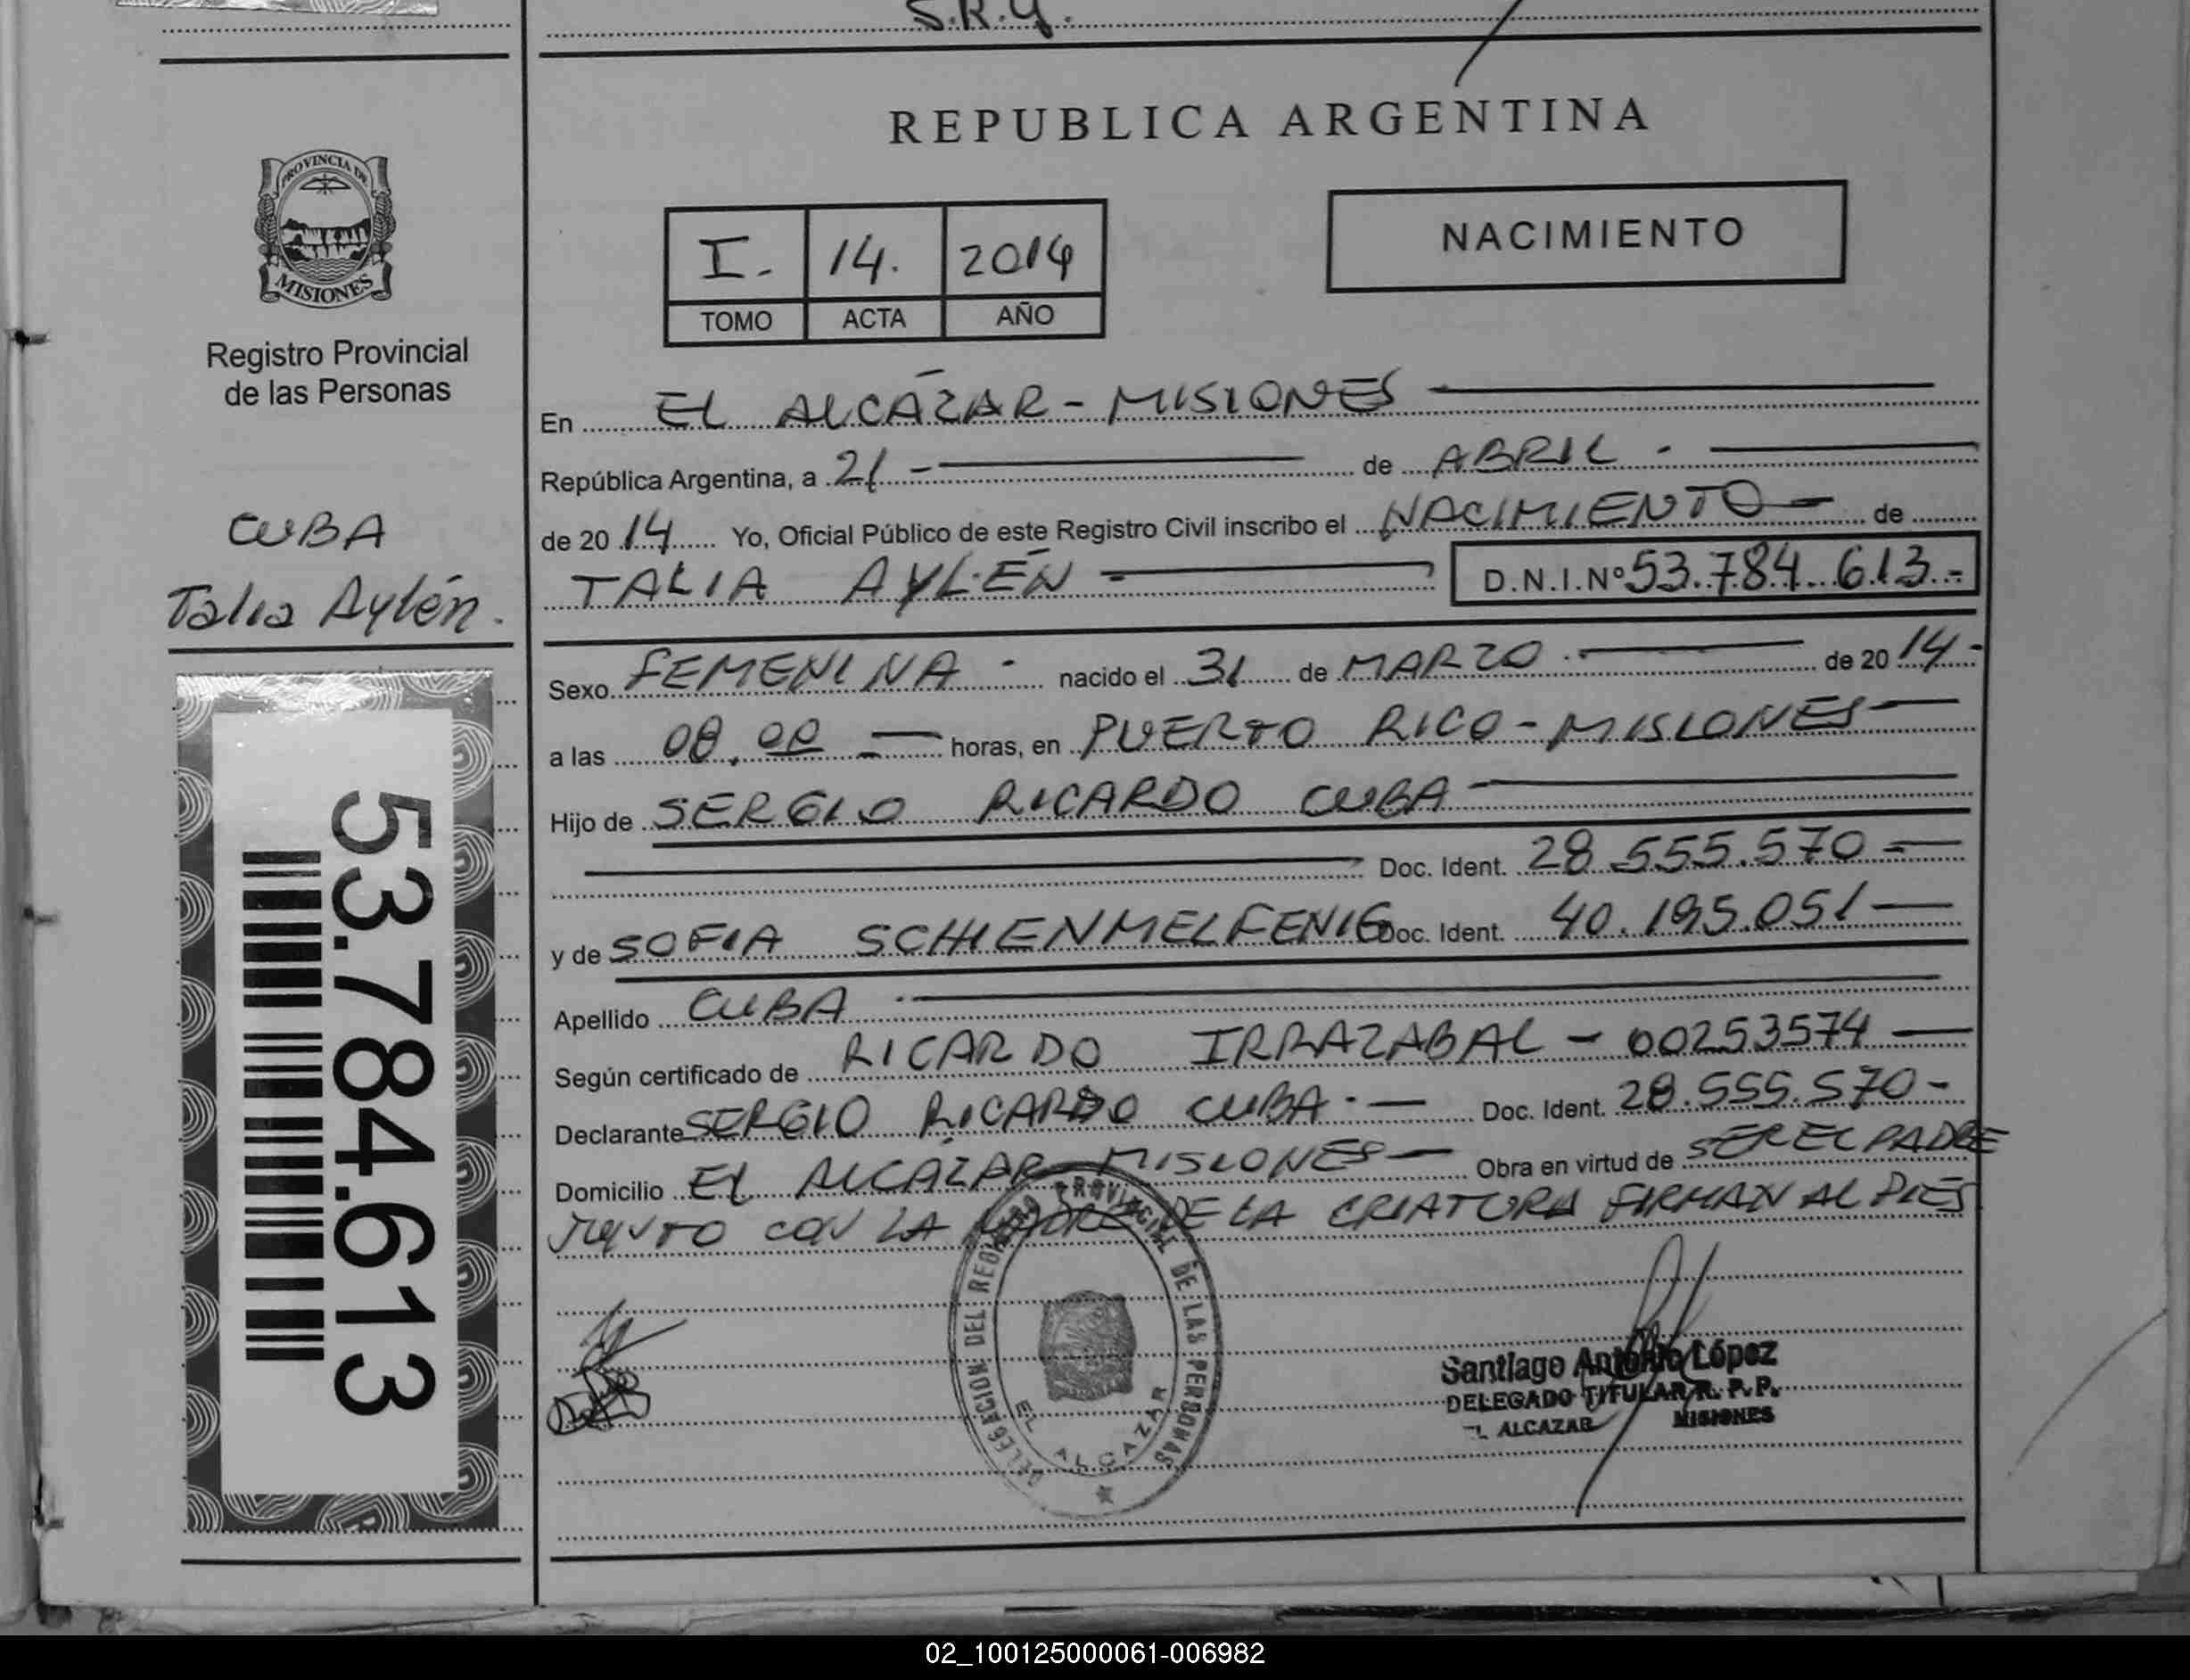 S.R.Y.
REPUBLICA ARGENTINA
PROVINCIA DE
MISIONES
I. 14. 2014
TOMO ACTA AÑO
NACIMIENTO
Registro Provincial
de las Personas
CUBA
Talia Aylén.
53.784.613
En EL ALCÁZAR - MISIONES
República Argentina, a 21 - de ABRIL -
de 20 14 Yo, Oficial Público de este Registro Civil inscribo el NACIMIENTO - de
TALIA AYLÉN - D.N.I.Nº 53.784.613.-
Sexo FEMENINA - nacido el 31 de MARZO . de 20 14.-
a las 08.00 - horas, en PUERTO RICO - MISIONES -
Hijo de SERGIO RICARDO CUBA -
Doc. Ident. 28.555.570 -
y de SOFIA SCHIENMELFENIG Doc. Ident. 40.195.051 -
Apellido CUBA .
Según certificado de RICARDO IRRAZABAL - 00253574 -
Declarante SERGIO RICARDO CUBA . - Doc. Ident. 28.555.570 -
Domicilio EL ALCÁZAR - MISIONES - Obra en virtud de SER EL PADRE
JUNTO CON LA MADRE DE LA CRIATURA FIRMAN AL PIES
DELEGACION DEL REGISTRO PROVINCIAL DE LAS PERSONAS
EL ALCAZAR
Santiago Antonio López
DELEGADO TITULAR R. P. P.
EL ALCAZAR MISIONES
02_100125000061-006982